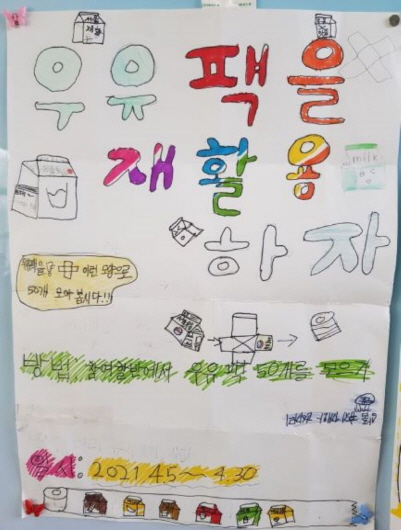 우유 팩을
재활용
하자
milk
이런 모양으로
50개 모아 봅시다!!
방법: 참여할반에서 우유 팩 50개를 모은다
일시: 2021 4.5 ~ 4.30